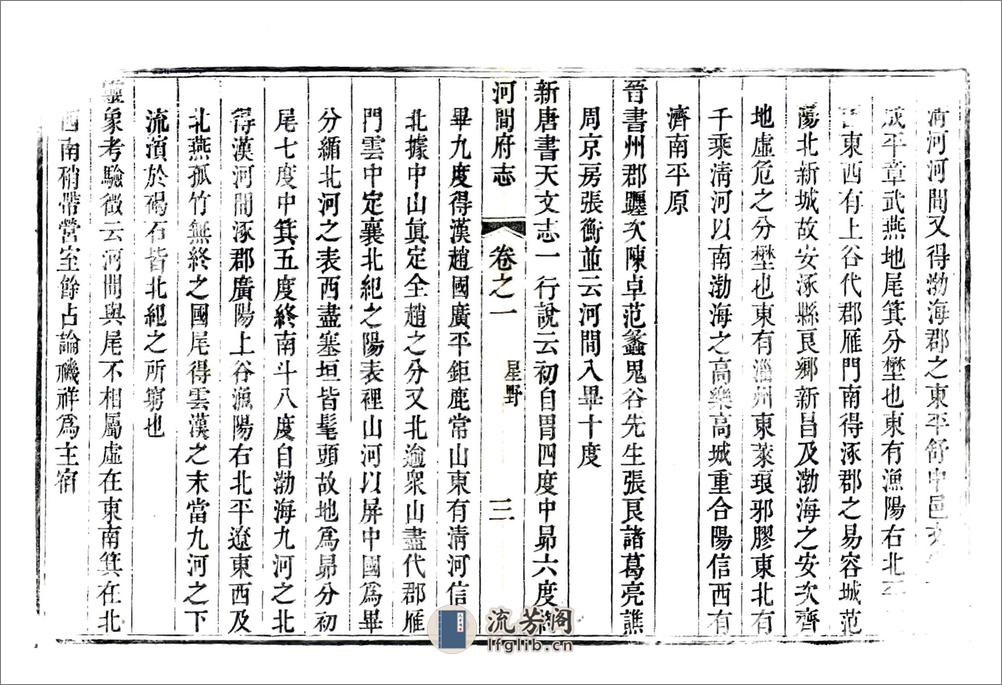 清河河間又得渤海郡之東平舒中邑文
成平章武燕地尾箕分壄也東有漁陽右北平
東西有上谷代郡雁門南得涿郡之易容城范
陽北新城故安涿縣良鄉新昌及渤海之安次齊
地虛危之分壄也東有淄州東萊琅邪膠東北有
千乘清河以南渤海之高樂高城重合陽信西有
濟南平原
晉書州郡躔次陳卓范蠡鬼谷先生張良諸葛亮譙
周京房張衡並云河間入畢十度
新唐書天文志一行說云初自胃四度中昴六度終
河間府志 卷之一 星野 三
畢九度得漢趙國廣平鉅鹿常山東有清河信
北據中山真定全趙之分又北逾衆山盡代郡雁
門雲中定襄北紀之陽表裡山河以屏中國爲畢
分循北河之表西盡塞垣皆髦頭故地爲昴分初
尾七度中箕五度終南斗八度自渤海九河之北
得漢河間涿郡廣陽上谷漁陽右北平遼東西及
北燕孤竹無終之國尾得雲漢之末當九河之下
流濱於碣石皆北紀之所窮也
靈象考驗徵云河間與尾不相屬虛在東南箕在北
西南稍帶營室餘占論禨祥爲主宿
流芳阁
lfglib.cn